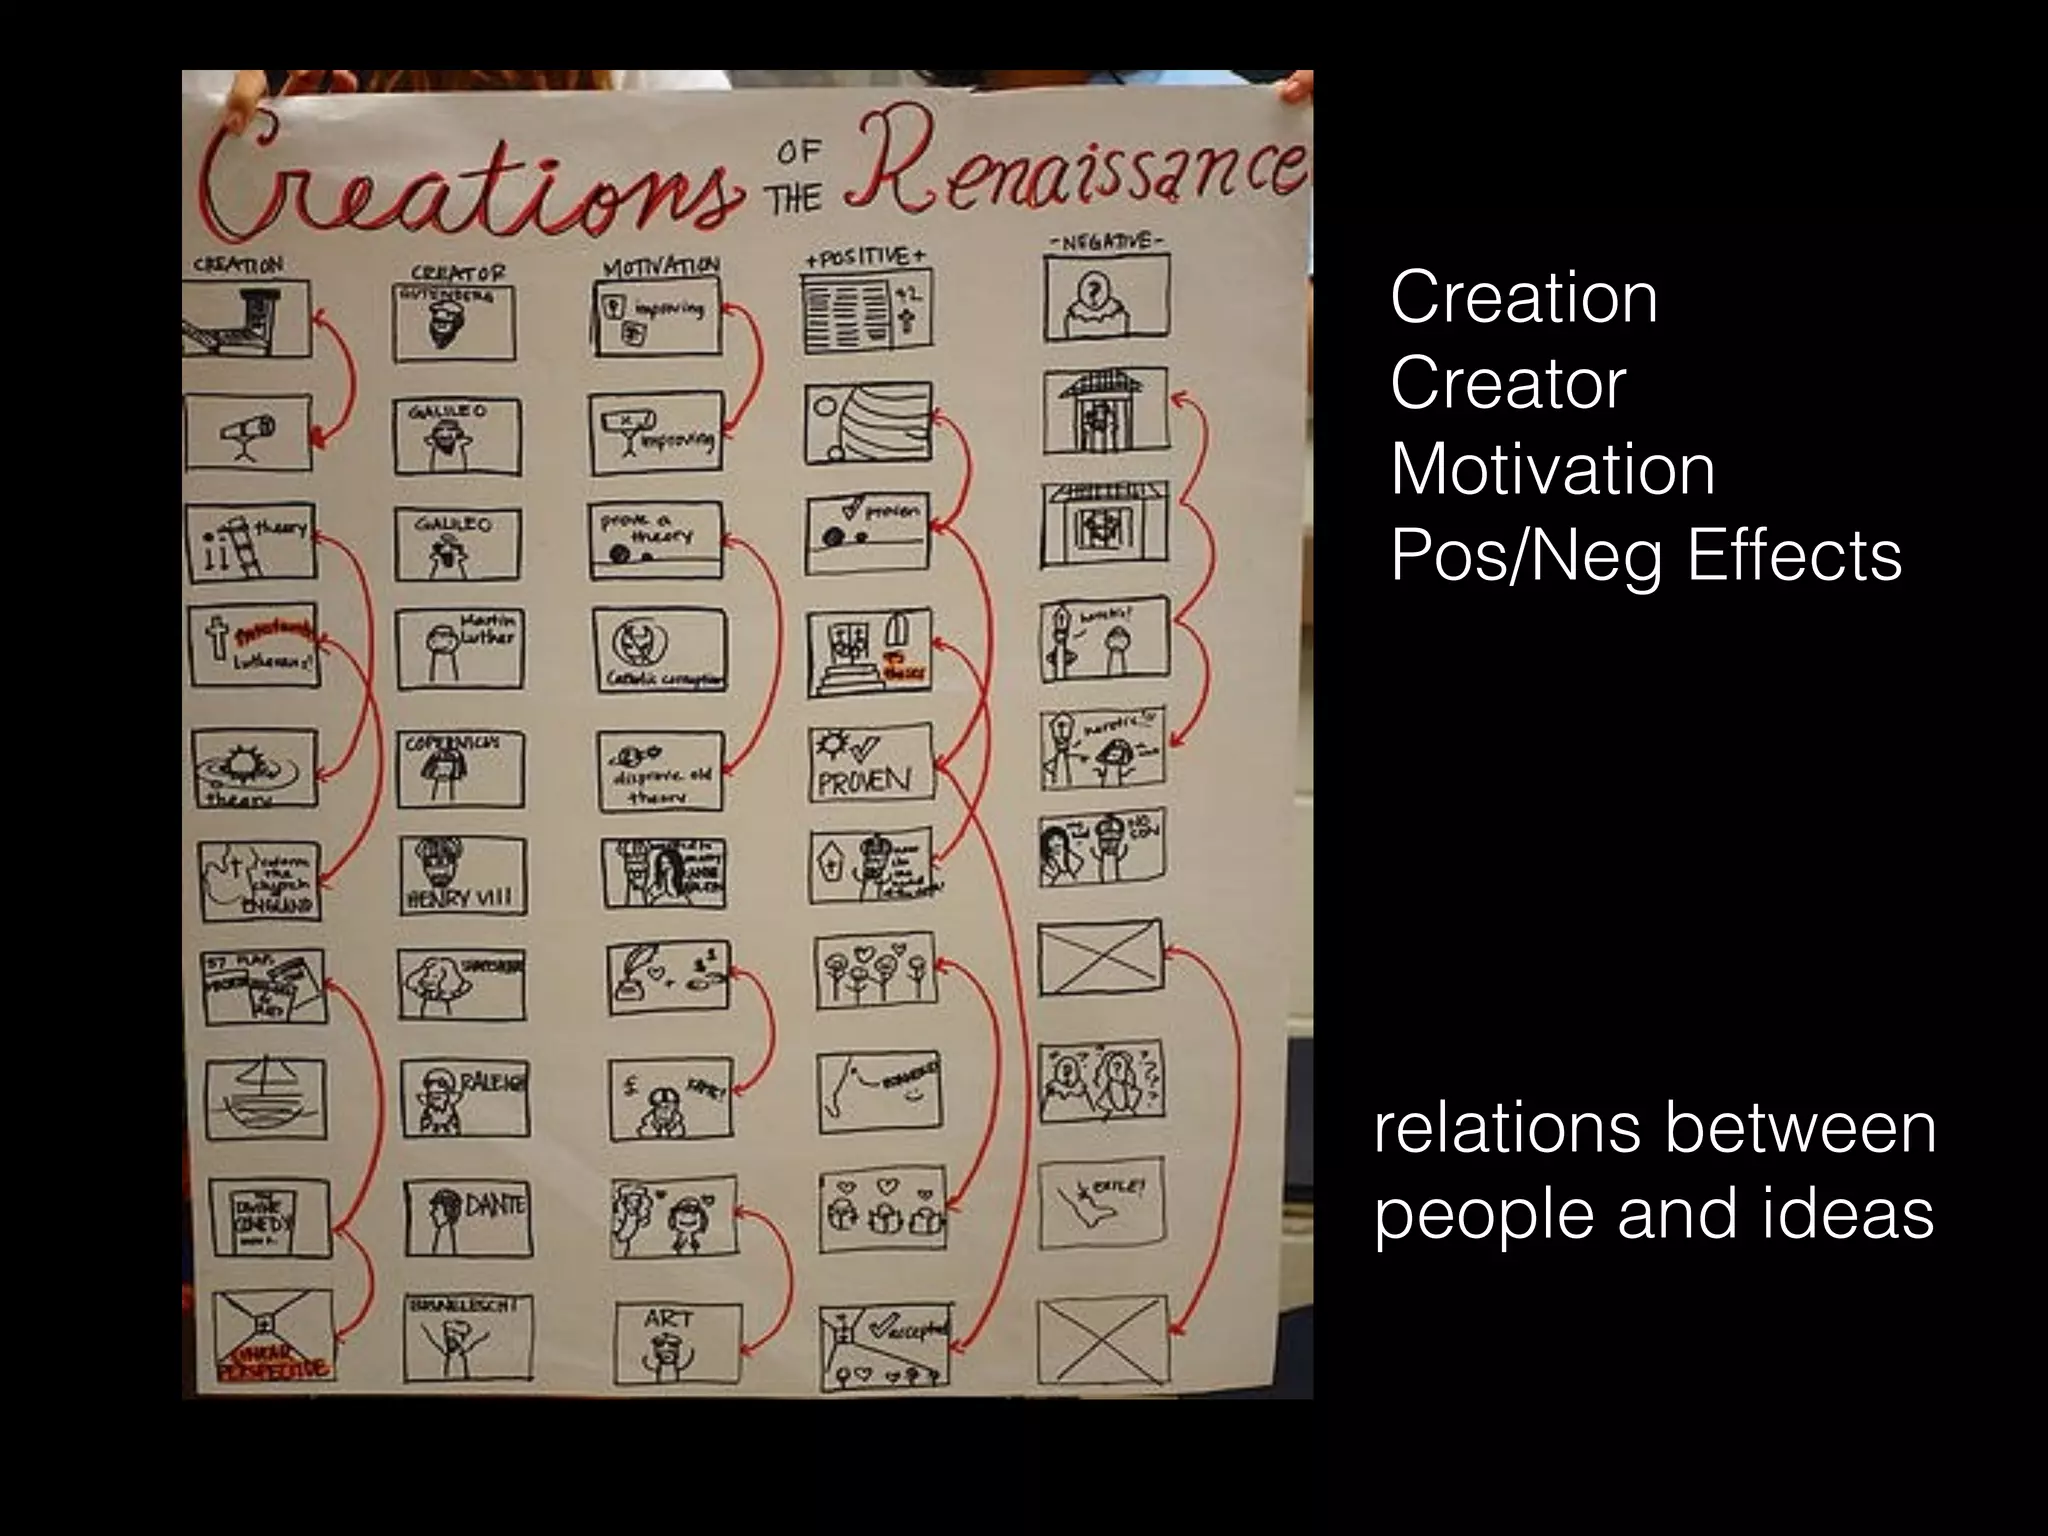 Creations OF THE Renaissance
CREATION
CREATOR
MOTIVATION
+POSITIVE+
-NEGATIVE-
GUTENBERG
improving
42
GALILEO
improving
theory
GALILEO
prove a
theory
proven
Lutherans!
Martin
Luther
Catholic corruption
95
theses
heretic!
theory
COPERNICUS
disprove old
theory
PROVEN
heretic!!
the
church
ENGLAND
HENRY VIII
NO
SON
37 PLAYS
RALEIGH
£
FAME!
DIVINE
COMEDY
DANTE
EXILE!
LINEAR
PERSPECTIVE
BRUNELESCHI
ART
accepted
Creation
Creator
Motivation
Pos/Neg Effects
relations between
people and ideas